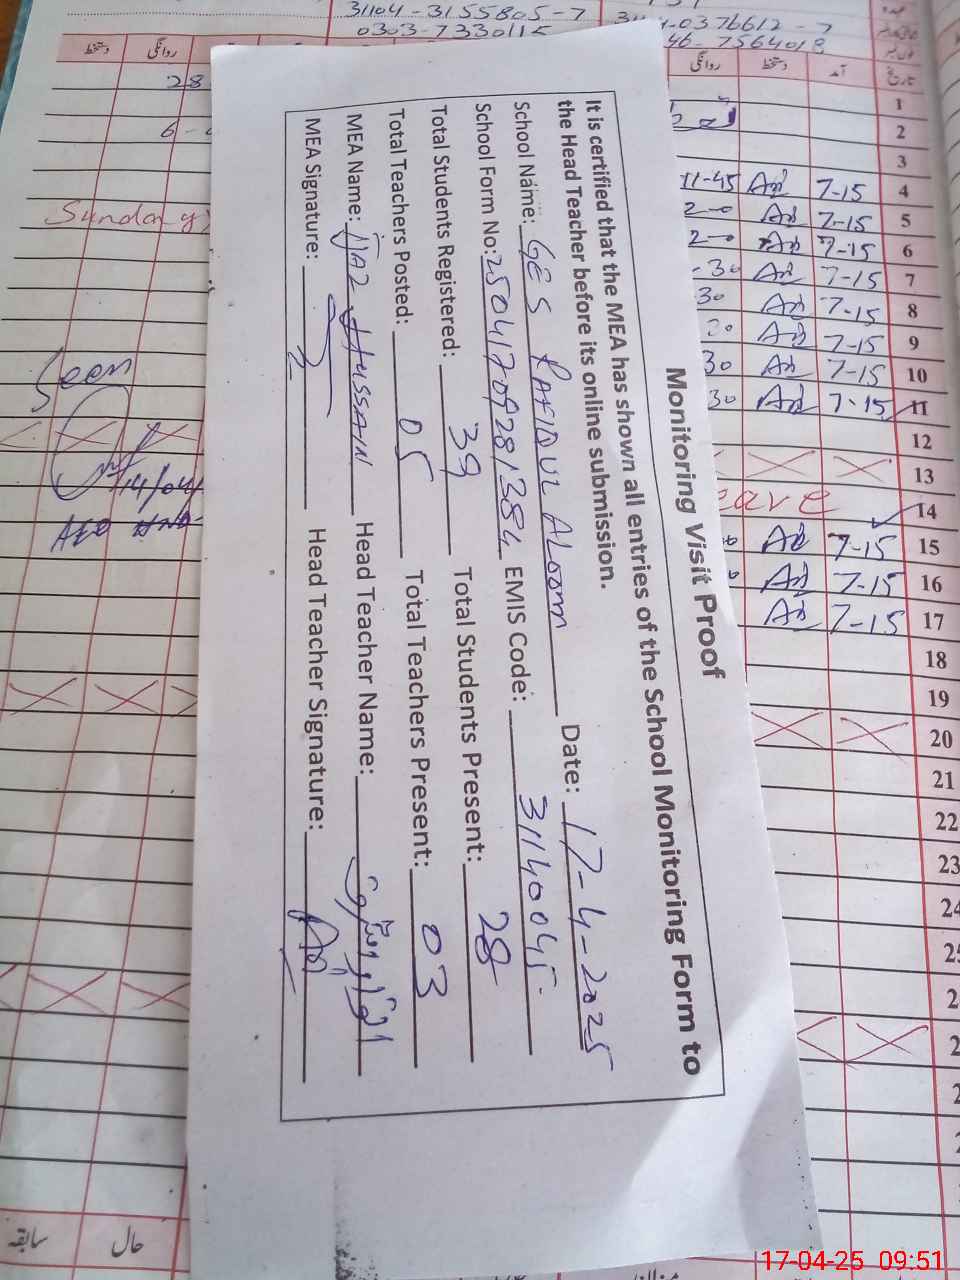 31104-3155805-7
0303-7330115
0376612-7
46-7564018
دستخط روانگی
روانگی دستخط آمد تاریخ
28
1
2
3
11-45 7-15 4
7-15 5
7-15 6
30 7-15 7
30 7-15 8
7-15 9
30 7-15 10
30 7-15 11
12
13
14
7-15 15
7-15 16
7-15 17
18
19
20
21
22
23
Sunday
Seen
14/04/
AEO
Monitoring Visit Proof
It is certified that the MEA has shown all entries of the School Monitoring Form to
the Head Teacher before its online submission.
School Name: GES RAFIQUL ALOOM Date: 17-4-2025
School Form No: 25041709281384 EMIS Code: 31140045
Total Students Registered: 39 Total Students Present: 28
Total Teachers Posted: 05 Total Teachers Present: 03
MEA Name: IJAZ HUSSAIN Head Teacher Name:
MEA Signature: Head Teacher Signature:
سابقہ حال
17-04-25 09:51